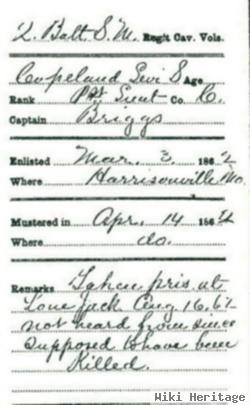 2. Batt S. M. Reg't Cav. Vols.
Copeland Levi S Age
Rank 1st Lieut Co. C.
Captain Briggs
Enlisted Mar. 3. 1862
Where Harrisonville Mo.
Mustered in Apr. 14 1862
Where do.
Remarks Taken pris. at
Lone Jack Aug 16, 62
not heard from since
supposed to have been
Killed.
Wiki Heritage